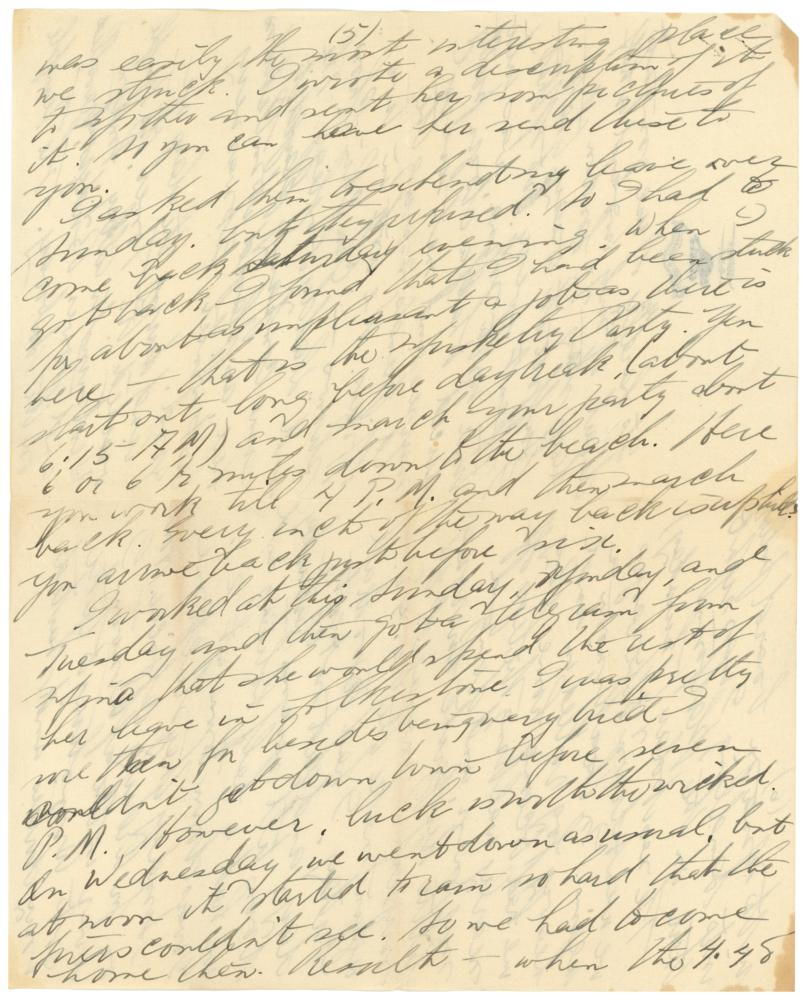 (5)
was easily the most interesting place
we struck. I wrote a description of it
to Mother and sent her som pictures of
it. So you can have her send these to
you.
I asked them to extend my leave over
Sunday. but they refused. So I had to
come back Saturday evening. When I
got back I found that I had been stuck
for about as unpleasant a job as there is
here — that is the Musketry Party. You
start out long before daybreak (about
6:15 A.M.) and march your party about
6 or 6 1/2 miles down to the beach. Here
you work till 4 P.M. and then march
back. Every inch of the way back is uphill.
You arrive back just before six.
I worked at this Sunday, Monday, and
Tuesday and then got a telegram from
Mina that she would spend the rest of
her leave in Folkestone. I was pretty
sore then for besides being very tired I
couldn't get down town before seven
P.M. However, luck is with the wicked.
On Wednesday we went down as usual, but
at noon it started to rain so hard that the
firers couldn't see. So we had to come
home then. Result — when the 4.48